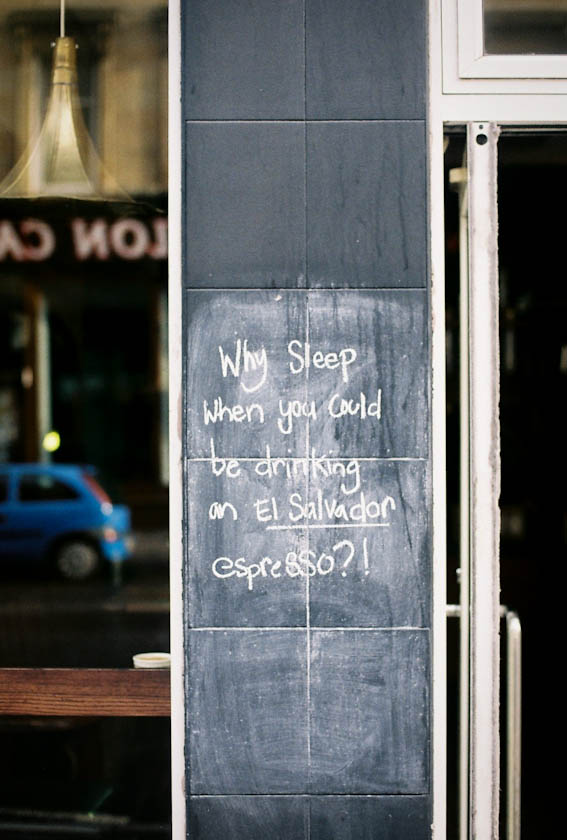 LON CA
Why Sleep
when you could
be drinking
an El Salvador
espresso?!